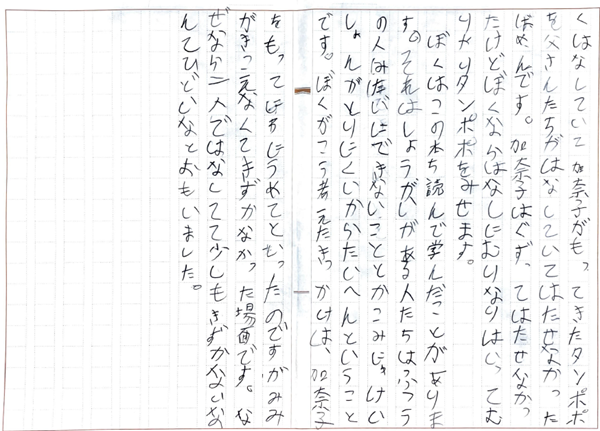 くはなしていて加奈子がもってきたタンポポ
を父さんたちがはなしていてはたせなかった
ばめんです。加奈子はぐず、てはたせなかっ
たけどぼくならはなしにむりなりはいってむ
りやりタンポポをみせます。
ぼくはこの本ち読んで学んだことがありま
す。それはしょうがいがある人たちはふつう
の人みたいにできないこととかこみにゅけい
しょんがとりにくいからたいへんということ
です。ぼくがこう考えたきっかけは、加奈子
をもって
のですがみみ
がきこえなくてきずかなかった場面です。な
ぜなら二人ではなしてて少しもきずかないな
んてひどいなとおもいました。